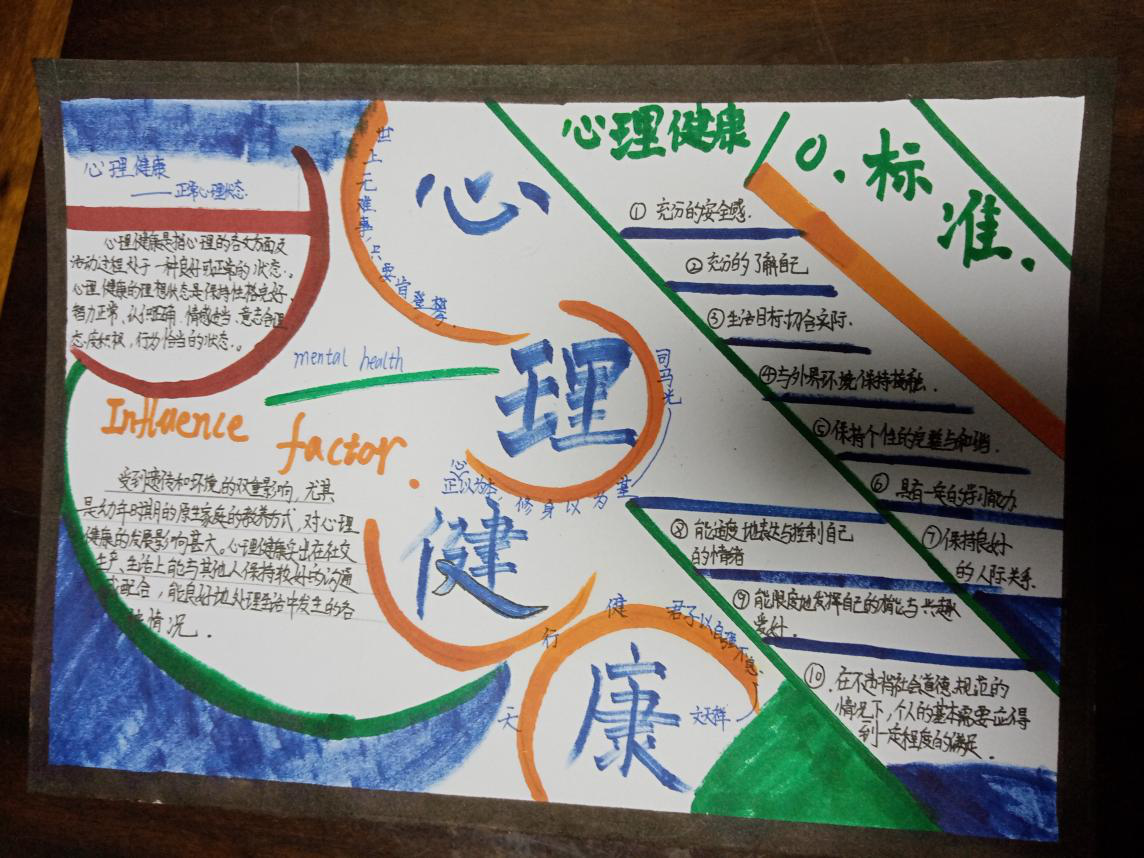 心理健康
——正常心理状态.
心理健康是指心理的各个方面及
活动过程处于一种良好或正常的状态.。
心理健康的理想状态是保持性格完好、
智力正常、认知正确、情感适当、意志合理、
态度积极、行为恰当的状态.。
mental health
Influence
factor.
受到遗传和环境的双重影响,尤其
是幼年时期的原生家庭的教养方式,对心理
健康的发展影响甚大。心理健康突出在社交、
生产、生活上能与其他人保持较好的沟通
或配合,能良好地处理生活中发生的各
种情况.
世上无难事,只要肯登攀.
心
理
健
康
司马光
正以为
修身以为
天行健
君子以自强不息.
文天祥
心理健康
标
准.
① 充分的安全感.
② 充分的了解自己
③ 生活目标切合实际.
④ 与外界环境保持接触.
⑤ 保持个性的完整与和谐.
⑥ 具有一定的学习能力
⑦ 保持良好
的人际关系.
⑧ 能适度地表达与控制自己
的情绪
⑨ 能限度地发挥自己的 与兴趣
爱好.
⑩ 在不违背社会道德规范的
情况下,个人的基本需要应得
到一定程度的满足.